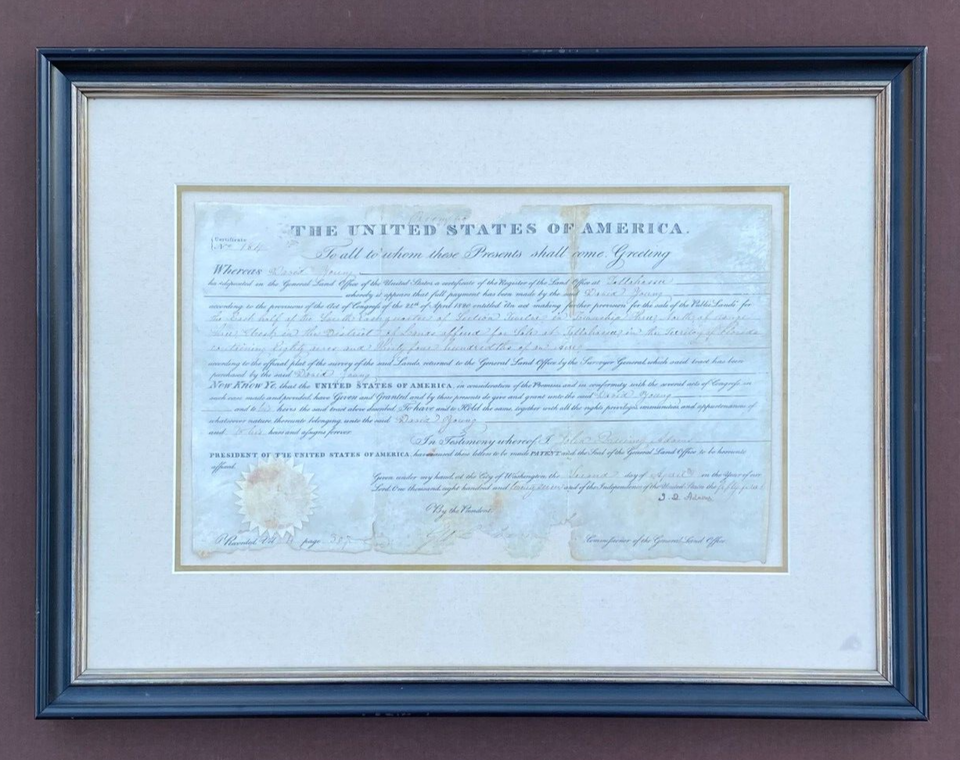 THE UNITED STATES OF AMERICA.
Certificate
No. 184
To all to whom these Presents shall come, Greeting
Whereas David Young
ha deposited in the General Land Office of the United States a certificate of the Register of the Land Office at Tallahassee
whereby it appears that full payment has been made by the said David Young
according to the provisions of the Act of Congress of the 24th of April 1820, entitled "An act making further provision for the sale of the Public Lands" for
the East half of the South East quarter of Section Twelve in Township three North of Range
East in the District of Lands offered for Sale at Tallahassee in the Territory of Florida
containing Eighty acres and Ninety four hundredths of an acre
according to the official plat of the survey of the said Lands, returned to the General Land Office by the Surveyor General, which said tract has been
purchased by the said David Young
Now Know Ye, that the UNITED STATES OF AMERICA, in consideration of the Premises and in conformity with the several acts of Congress, in
such case made and provided, have Given and Granted and by these presents do give and grant unto the said David Young
and to his heirs the said tract above described, To have and to Hold the same, together with all the rights privileges, immunities, and appurtenances of
whatsoever nature, thereunto belonging, unto the said David Young
and to his heirs and assigns forever.
In Testimony whereof, I John Quincy Adams
PRESIDENT OF THE UNITED STATES OF AMERICA, have caused these Letters to be made PATENT, and the Seal of the General Land Office to be hereunto
affixed.
Given under my hand at the City of Washington, the Second day of April in the Year of our
Lord, One thousand eight hundred and twenty seven and of the Independence of the United States the fifty first
J. Q. Adams
By the President
Recorded, Vol page 307
Commissioner of the General Land Office